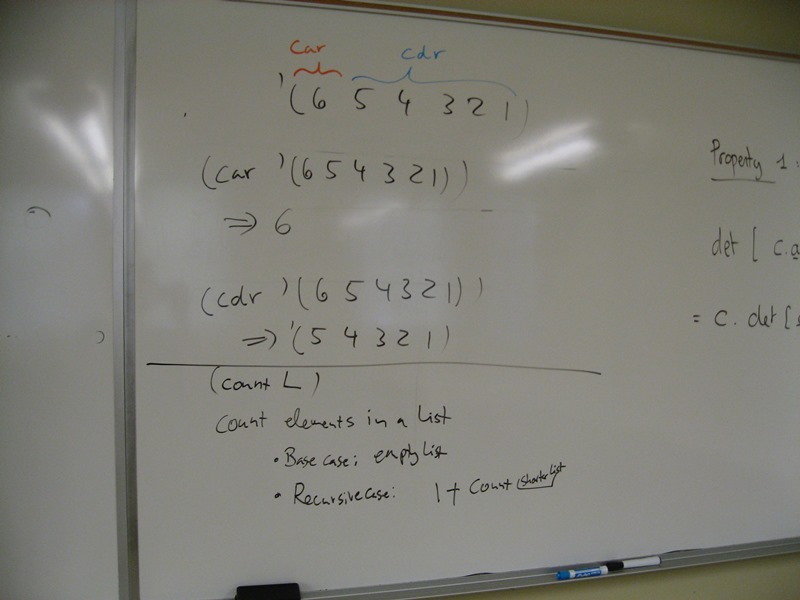 car cdr
'(6 5 4 3 2 1)
(car '(6 5 4 3 2 1))
⇒ 6
(cdr '(6 5 4 3 2 1))
⇒ '(5 4 3 2 1)
(count L)
Count elements in a List
• Base case: empty list
• Recursive case: 1 + count (shorter list
Property 1.
det [ c.a
= c. det [